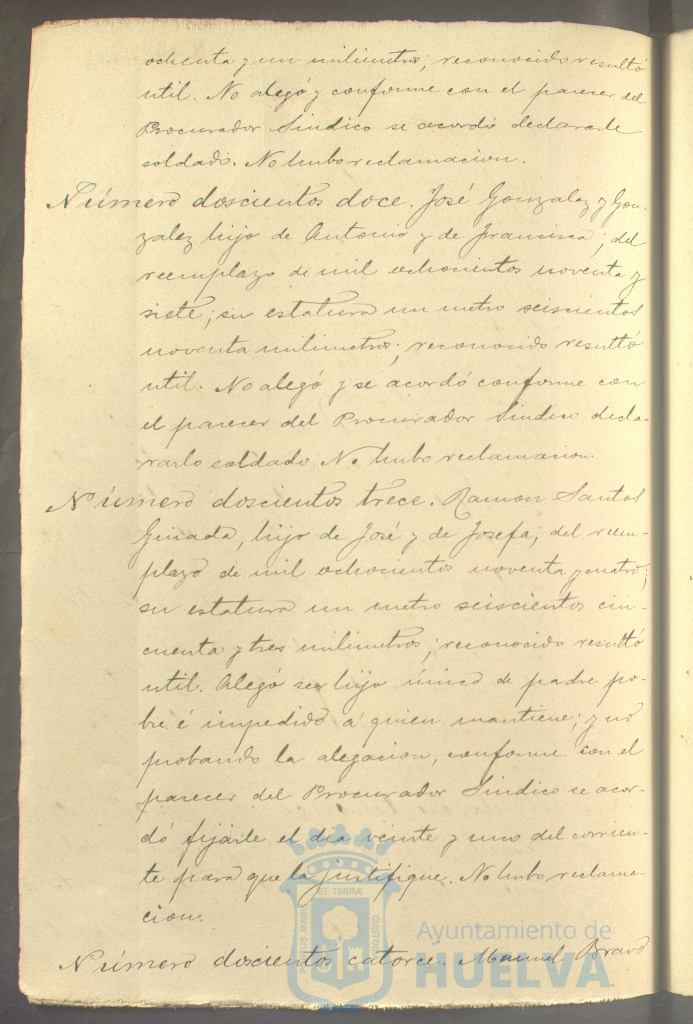 ochenta y un milimetros; reconocido resultó
util. No alegó y conforme con el parecer del
Procurador Sindico se acordó declararle
soldado. No hubo reclamacion.
Número doscientos doce. José Gonzalez y Gon-
zalez hijo de Antonio y de Francisca; del
reemplazo de mil ochocientos noventa y
siete; su estatura un metro seiscientos
noventa milimetros; reconocido resultó
util. No alegó y se acordó conforme con
el parecer del Procurador Sindico decla-
rarlo soldado. No hubo reclamacion.
Número doscientos trece. Ramon Santos
Guiada, hijo de José y de Josefa; del reem-
plazo de mil ochocientos noventa y cuatro;
su estatura un metro seiscientos cin-
cuenta y tres milimetros; reconocido resultó
util. Alegó ser hijo único de padre po-
bre é impedido á quien mantiene; y no
probando la alegacion, conforme con el
parecer del Procurador Sindico se acor-
dó fijarle el dia veinte y uno del corrien-
te para que la justifique. No hubo reclama-
cion.
Número doscientos catorce. Manuel Bravo
PORTUS MARIS ET TERRÆ CUSTODIA
Ayuntamiento de
HUELVA